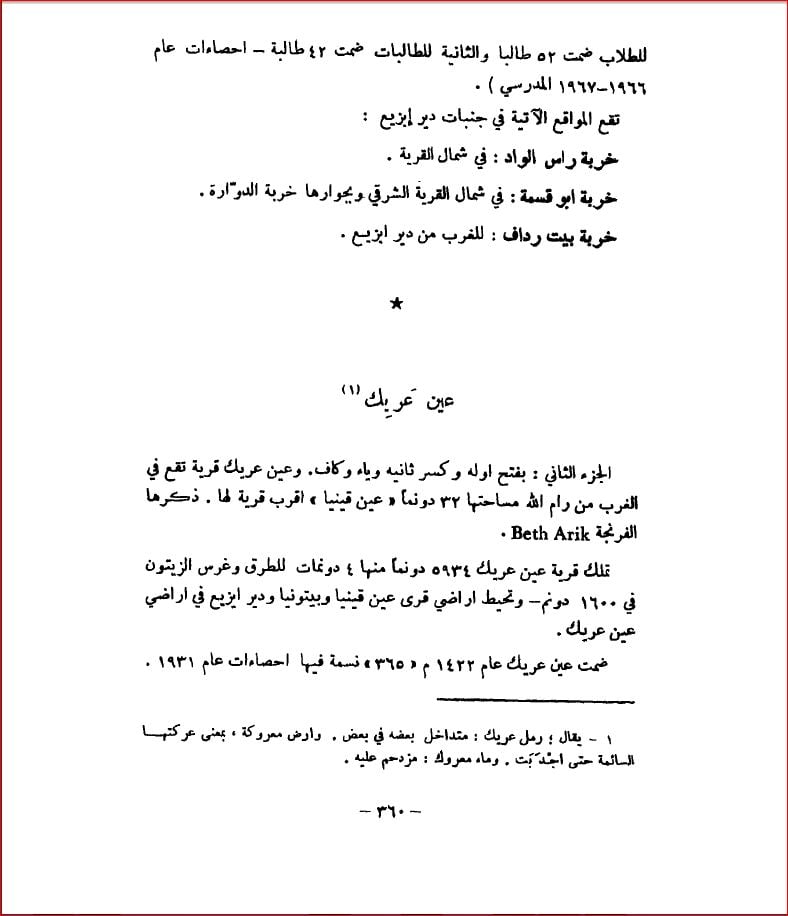 للطلاب ضمت ٥٢ طالبا والثانية للطالبات ضمت ٤٢ طالبة – احصاءات عام
١٩٦٦–١٩٦٧ المدرسي ) .
تقع المواقع الآتية في جنبات دير إبزيع :
خربة راس الواد : في شمال القرية .
خربة ابو قسمة : في شمال القرية الشرقي وبجوارها خربة الدوّارة .
خربة بيت رداف : للغرب من دير ابزيع .
★
عين عَرِيك (١)
الجزء الثاني : بفتح اوله وكسر ثانيه وياء وكاف. وعين عريك قرية تقع في
الغرب من رام الله مساحتها ٣٢ دونماً « عين قينيا » اقرب قرية لها . ذكرها
الفرنجة Beth Arik .
تملك قرية عين عريك ٥٩٣٤ دونماً منها ٤ دونمات للطرق وغرس الزيتون
في ١٦٠٠ دونم – وتحيط اراضي قرى عين قينيا وبيتونيا ودير ابزيع في اراضي
عين عريك .
ضمت عين عريك عام ١٤٢٢ م « ٣٦٥ » نسمة فيها احصاءات عام ١٩٣١ .
١ – يقال ؛ رمل عريك : متداخل بعضه في بعض . وارض معروكة ، بمعنى عركتها
السائمة حتى اجْدَبَت . وماء معروك : مزدحم عليه .
– ٣٦٠ –